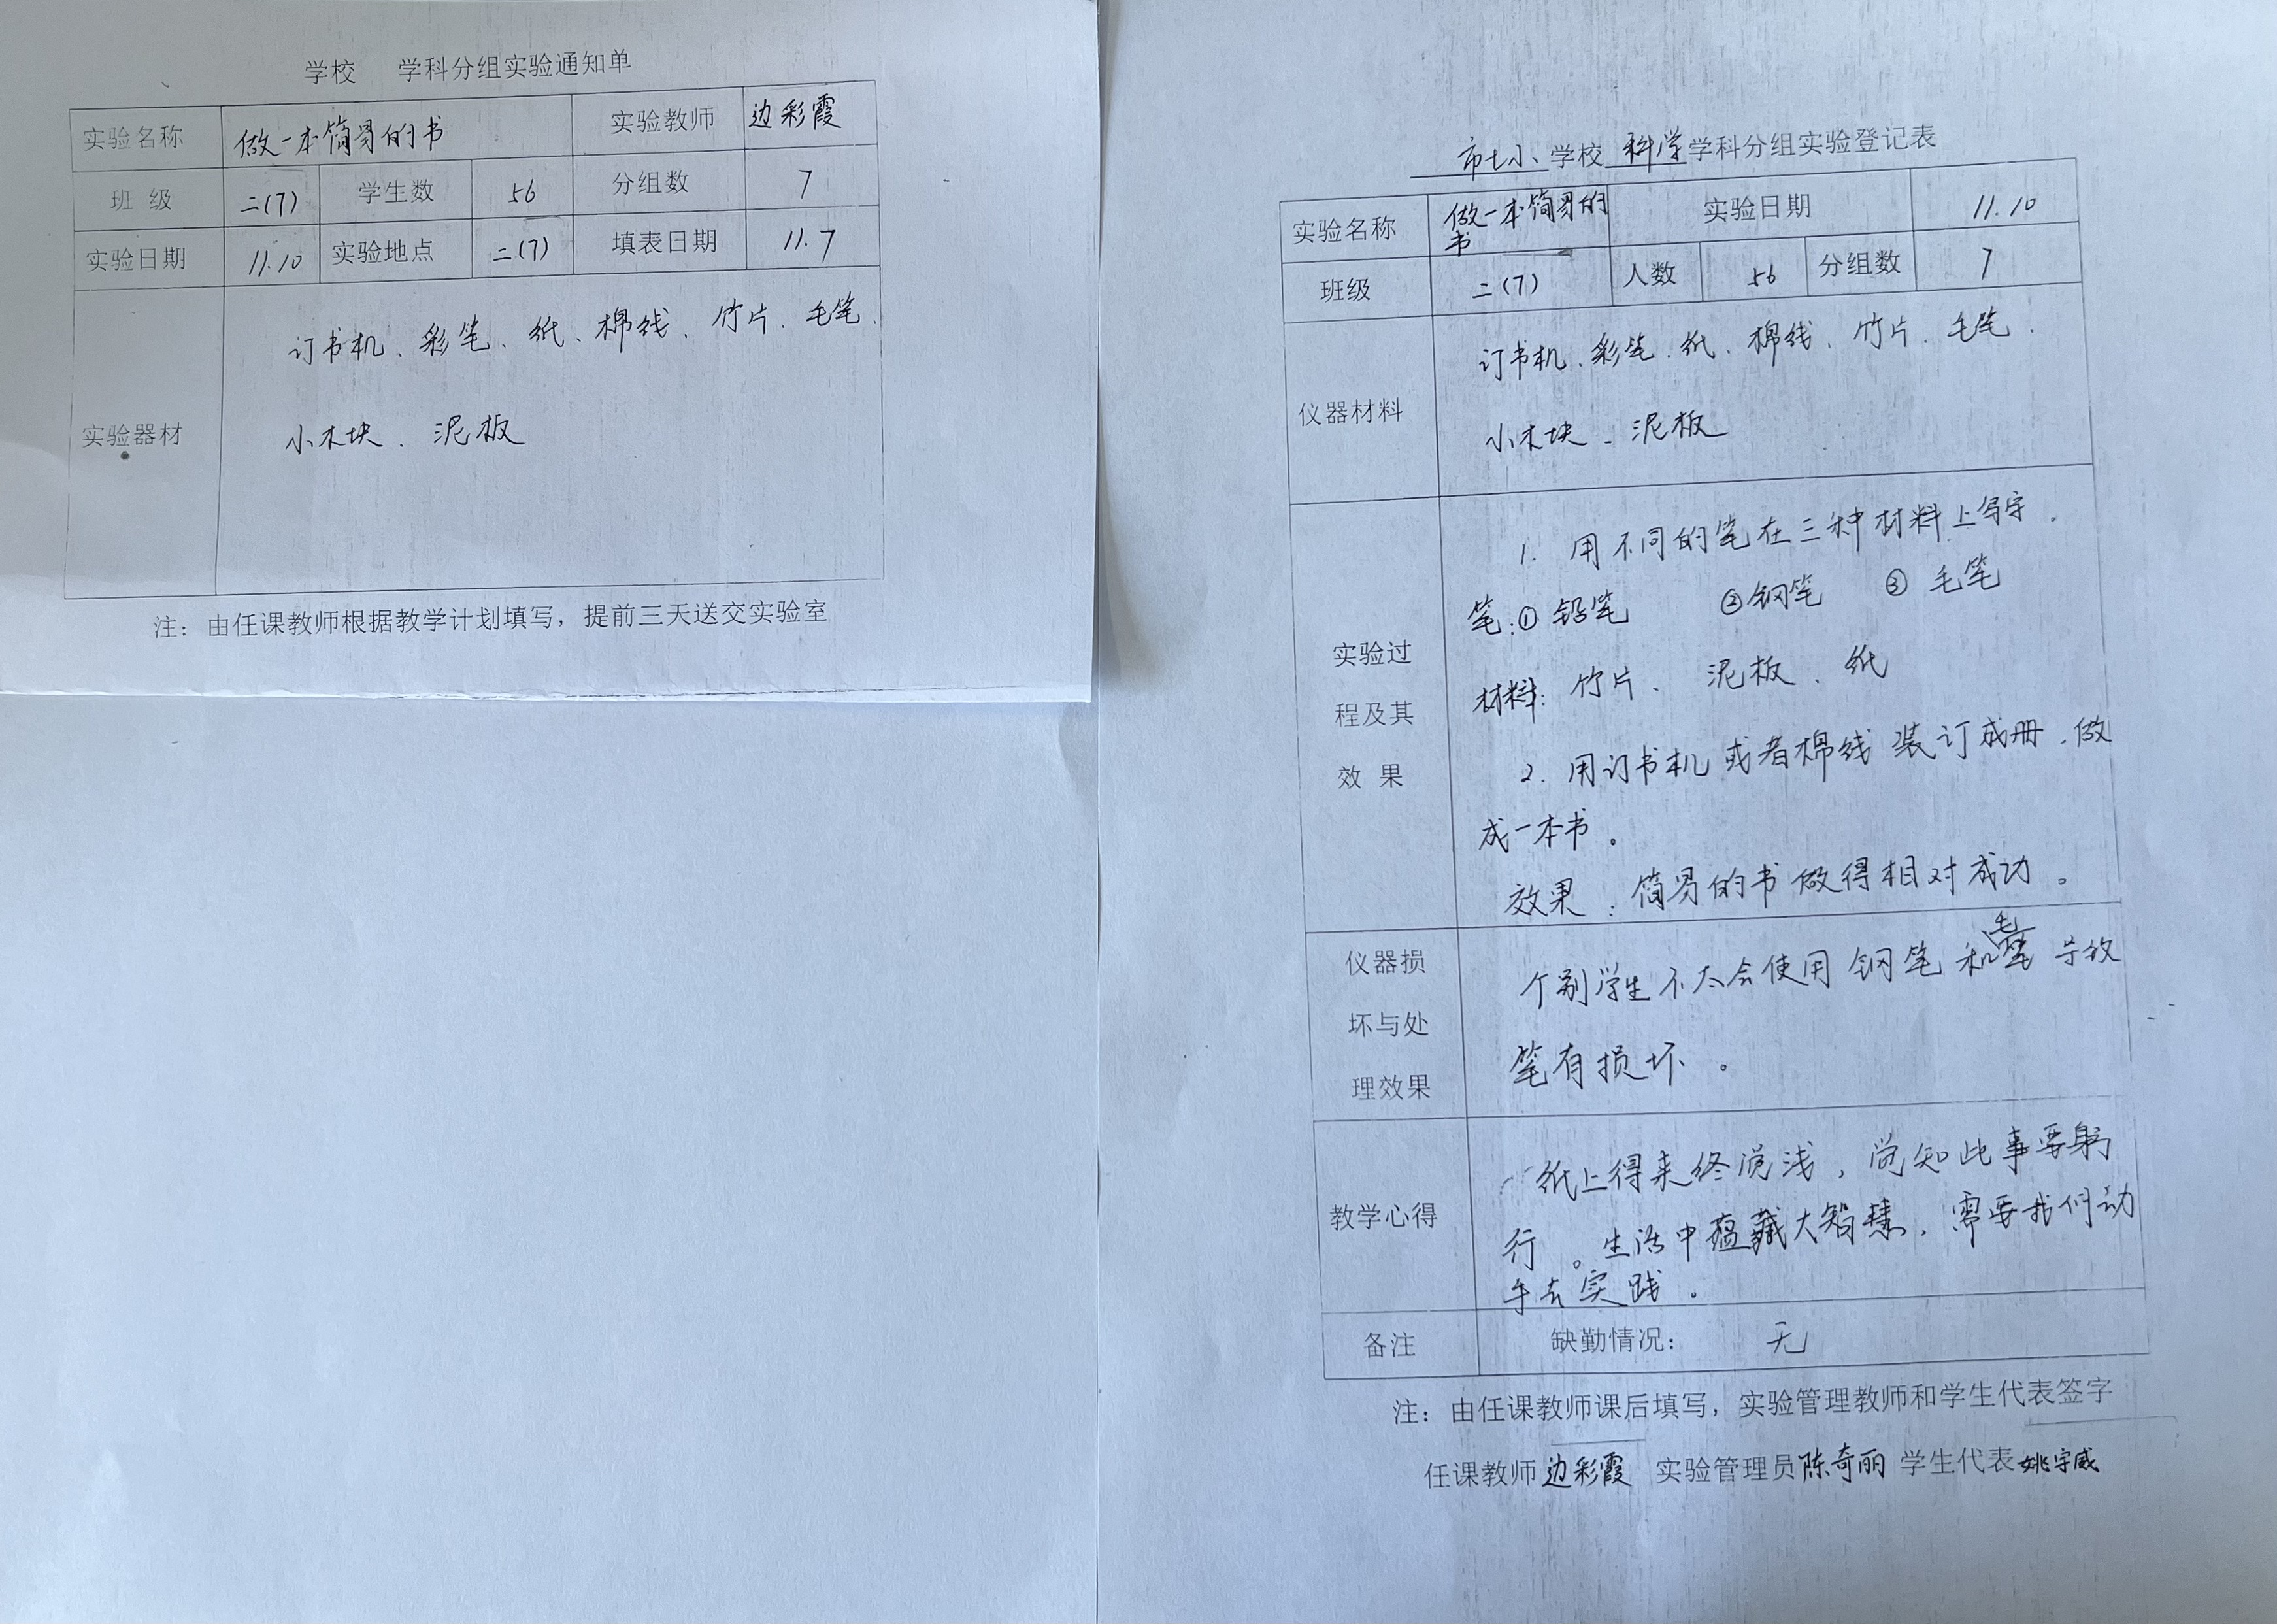 学校 学科分组实验通知单
实验名称 做一本简易的书 实验教师 边彩霞
班 级 二(7) 学生数 56 分组数 7
实验日期 11.10 实验地点 二(7) 填表日期 11.7
实验器材
订书机、彩笔、纸、棉线、竹片、毛笔、
小木块、泥板
注：由任课教师根据教学计划填写，提前三天送交实验室
市七小 学校 科学 学科分组实验登记表
实验名称 做一本简易的
书
实验日期 11.10
班级 二(7) 人数 56 分组数 7
仪器材料
订书机、彩笔、纸、棉线、竹片、毛笔、
小木块、泥板
实验过
程及其
效 果
1. 用不同的笔在三种材料上写字。
笔:① 铅笔 ②钢笔 ③ 毛笔
材料: 竹片、泥板、纸
2. 用订书机或者棉线装订成册,做
成一本书。
效果：简易的书做得相对成功。
仪器损
坏与处
理效果
个别学生不太会使用钢笔和毛笔导致
笔有损坏。
教学心得
纸上得来终觉浅，觉知此事要躬
行。生活中蕴藏大智慧,需要我们动
手去实践。
备注 缺勤情况： 无
注：由任课教师课后填写，实验管理教师和学生代表签字
任课教师 边彩霞 实验管理员 陈奇丽 学生代表 姚宇威